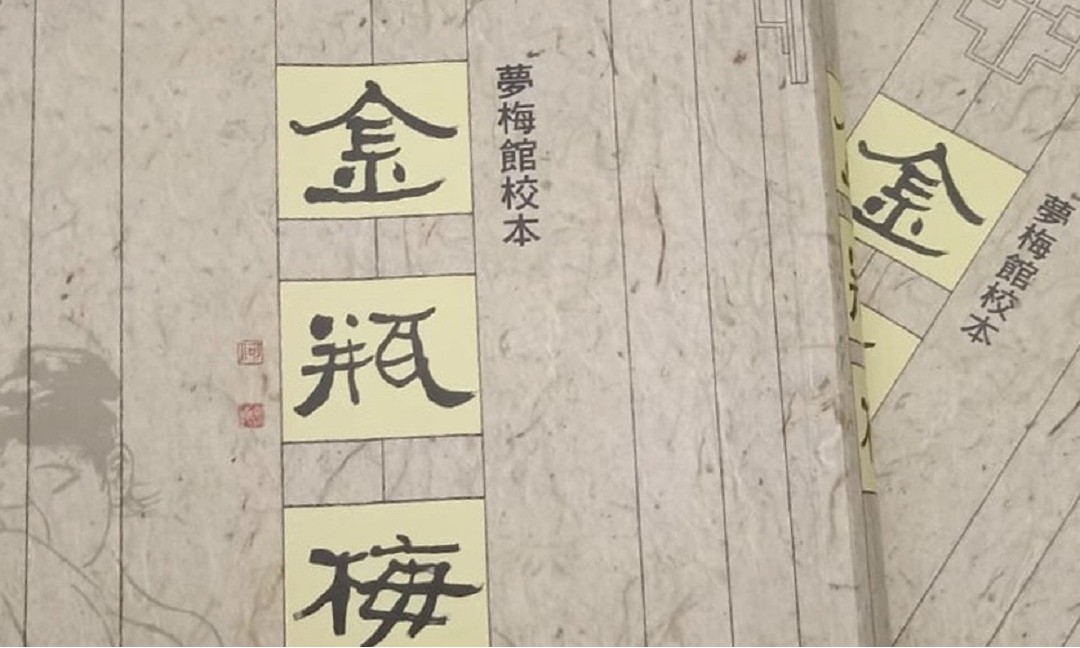 夢梅館校本
金瓶梅
夢梅館校本
金